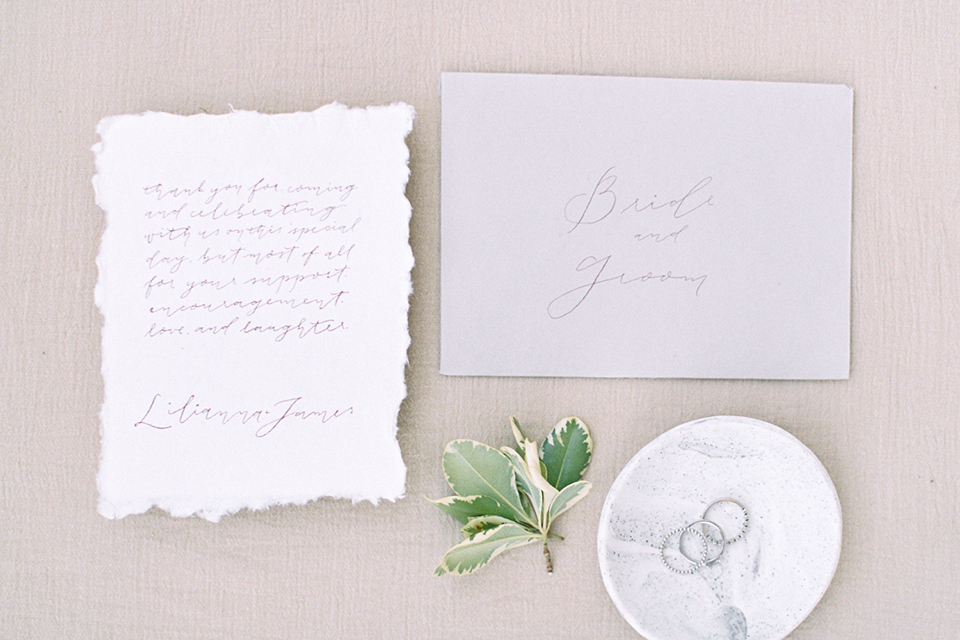 thank you for coming
and celebrating
with us on this special
day. but most of all
for your support.
encouragement.
love. and laughter.
Lilianna + James
Bride
and
Groom